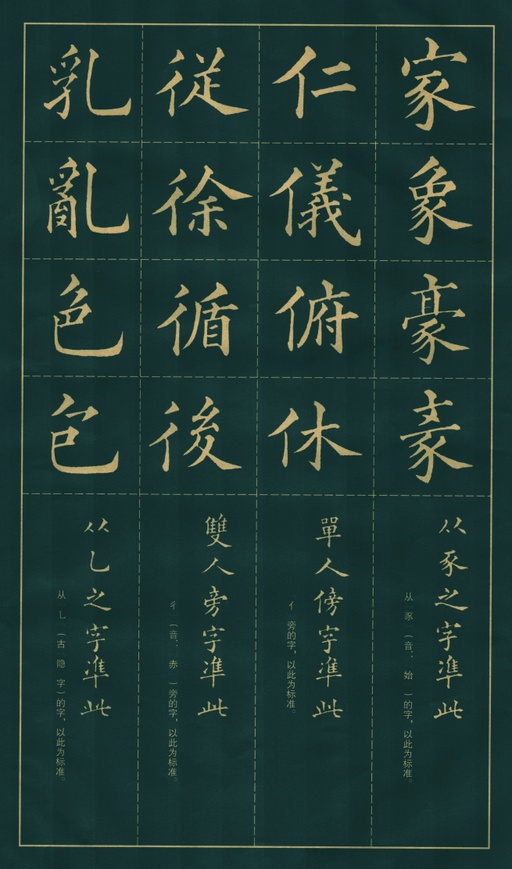 家象豪
从豕之字準此
从豕（音：始）的字，以此为标准。
仁儀俯休
單人傍字準此
亻旁的字，以此为标准。
従徐循後
雙人旁字準此
彳（音：赤）旁的字，以此为标准。
乳亂色
从乚之字準此
从乚（古隐字）的字，以此为标准。